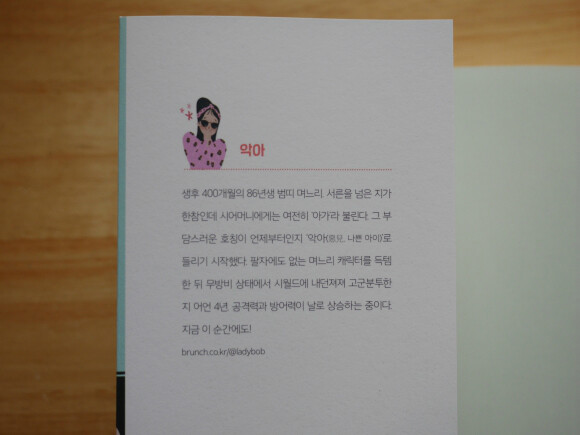 악아
생후 400개월의 86년생 범띠 며느리. 서른을 넘은 지가
한참인데 시어머니에게는 여전히 '아가'라 불린다. 그 부
담스러운 호칭이 언제부터인지 '악아(惡兒, 나쁜 아이)'로
들리기 시작했다. 팔자에도 없는 며느리 캐릭터를 득템
한 뒤 무방비 상태에서 시월드에 내던져져 고군분투한
지 어언 4년. 공격력과 방어력이 날로 상승하는 중이다.
지금 이 순간에도!
brunch.co.kr/@ladybob